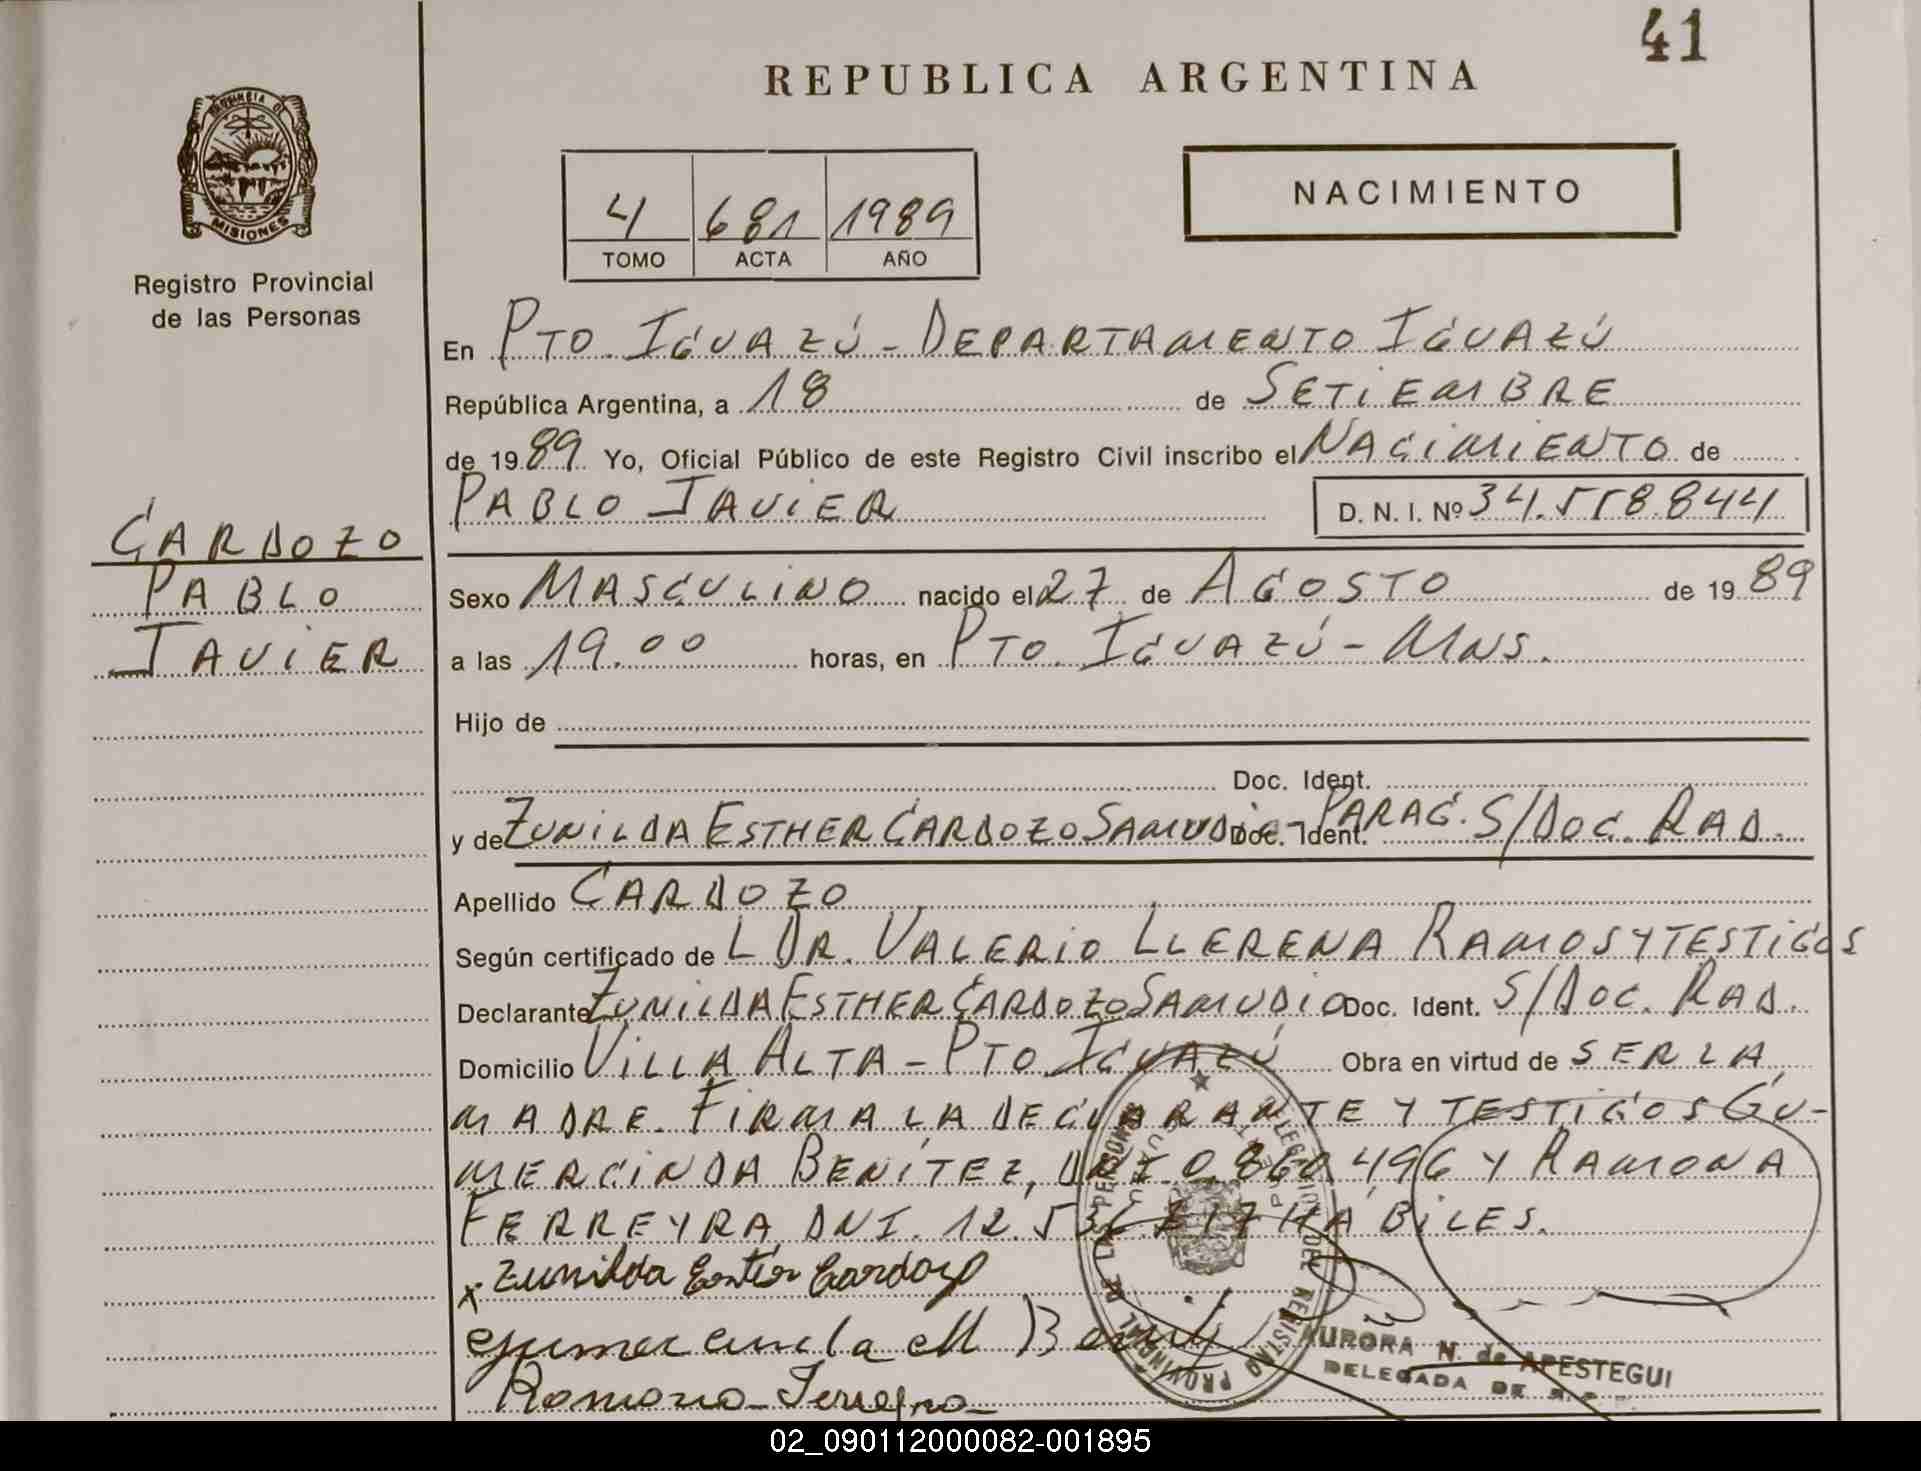 41
REPUBLICA ARGENTINA
PROVINCIA DE
MISIONES
Registro Provincial
de las Personas
4 681 1989
TOMO ACTA AÑO
NACIMIENTO
En PTO. IGUAZÚ - DEPARTAMENTO IGUAZÚ
República Argentina, a 18 de SETIEMBRE
de 1989 Yo, Oficial Público de este Registro Civil inscribo el NACIMIENTO de
PABLO JAVIER D. N. I. Nº 34.558.844
CARDOZO
PABLO
JAVIER
Sexo MASCULINO nacido el 27 de AGOSTO de 1989
a las 19.00 horas, en PTO. IGUAZÚ - MNS.
Hijo de
Doc. Ident.
y de ZUNILDA ESTHER CARDOZO SAMUDIO - Doc. Ident. PARAG. S/DOC. RAD.
Apellido CARDOZO
Según certificado de L DR. VALERIO LLERENA RAMOS Y TESTIGOS
Declarante ZUNILDA ESTHER CARDOZO SAMUDIO Doc. Ident. S/DOC. RAD.
Domicilio VILLA ALTA - PTO IGUAZÚ Obra en virtud de SER LA
MADRE. FIRMA LA DECLARANTE Y TESTIGOS GU-
MERCINDA BENÍTEZ, DNI 0.860.496 Y RAMONA
FERREYRA DNI. 12.53 HÁBILES.
x Zunilda Ester Cardozo
Gumercinda M B
Ramona Ferreyra
DELEGACION DEL REGISTRO PROVINCIAL DE LAS PERSONAS
AURORA N. de APESTEGUI
DELEGADA DE R.P.
02_090112000082-001895